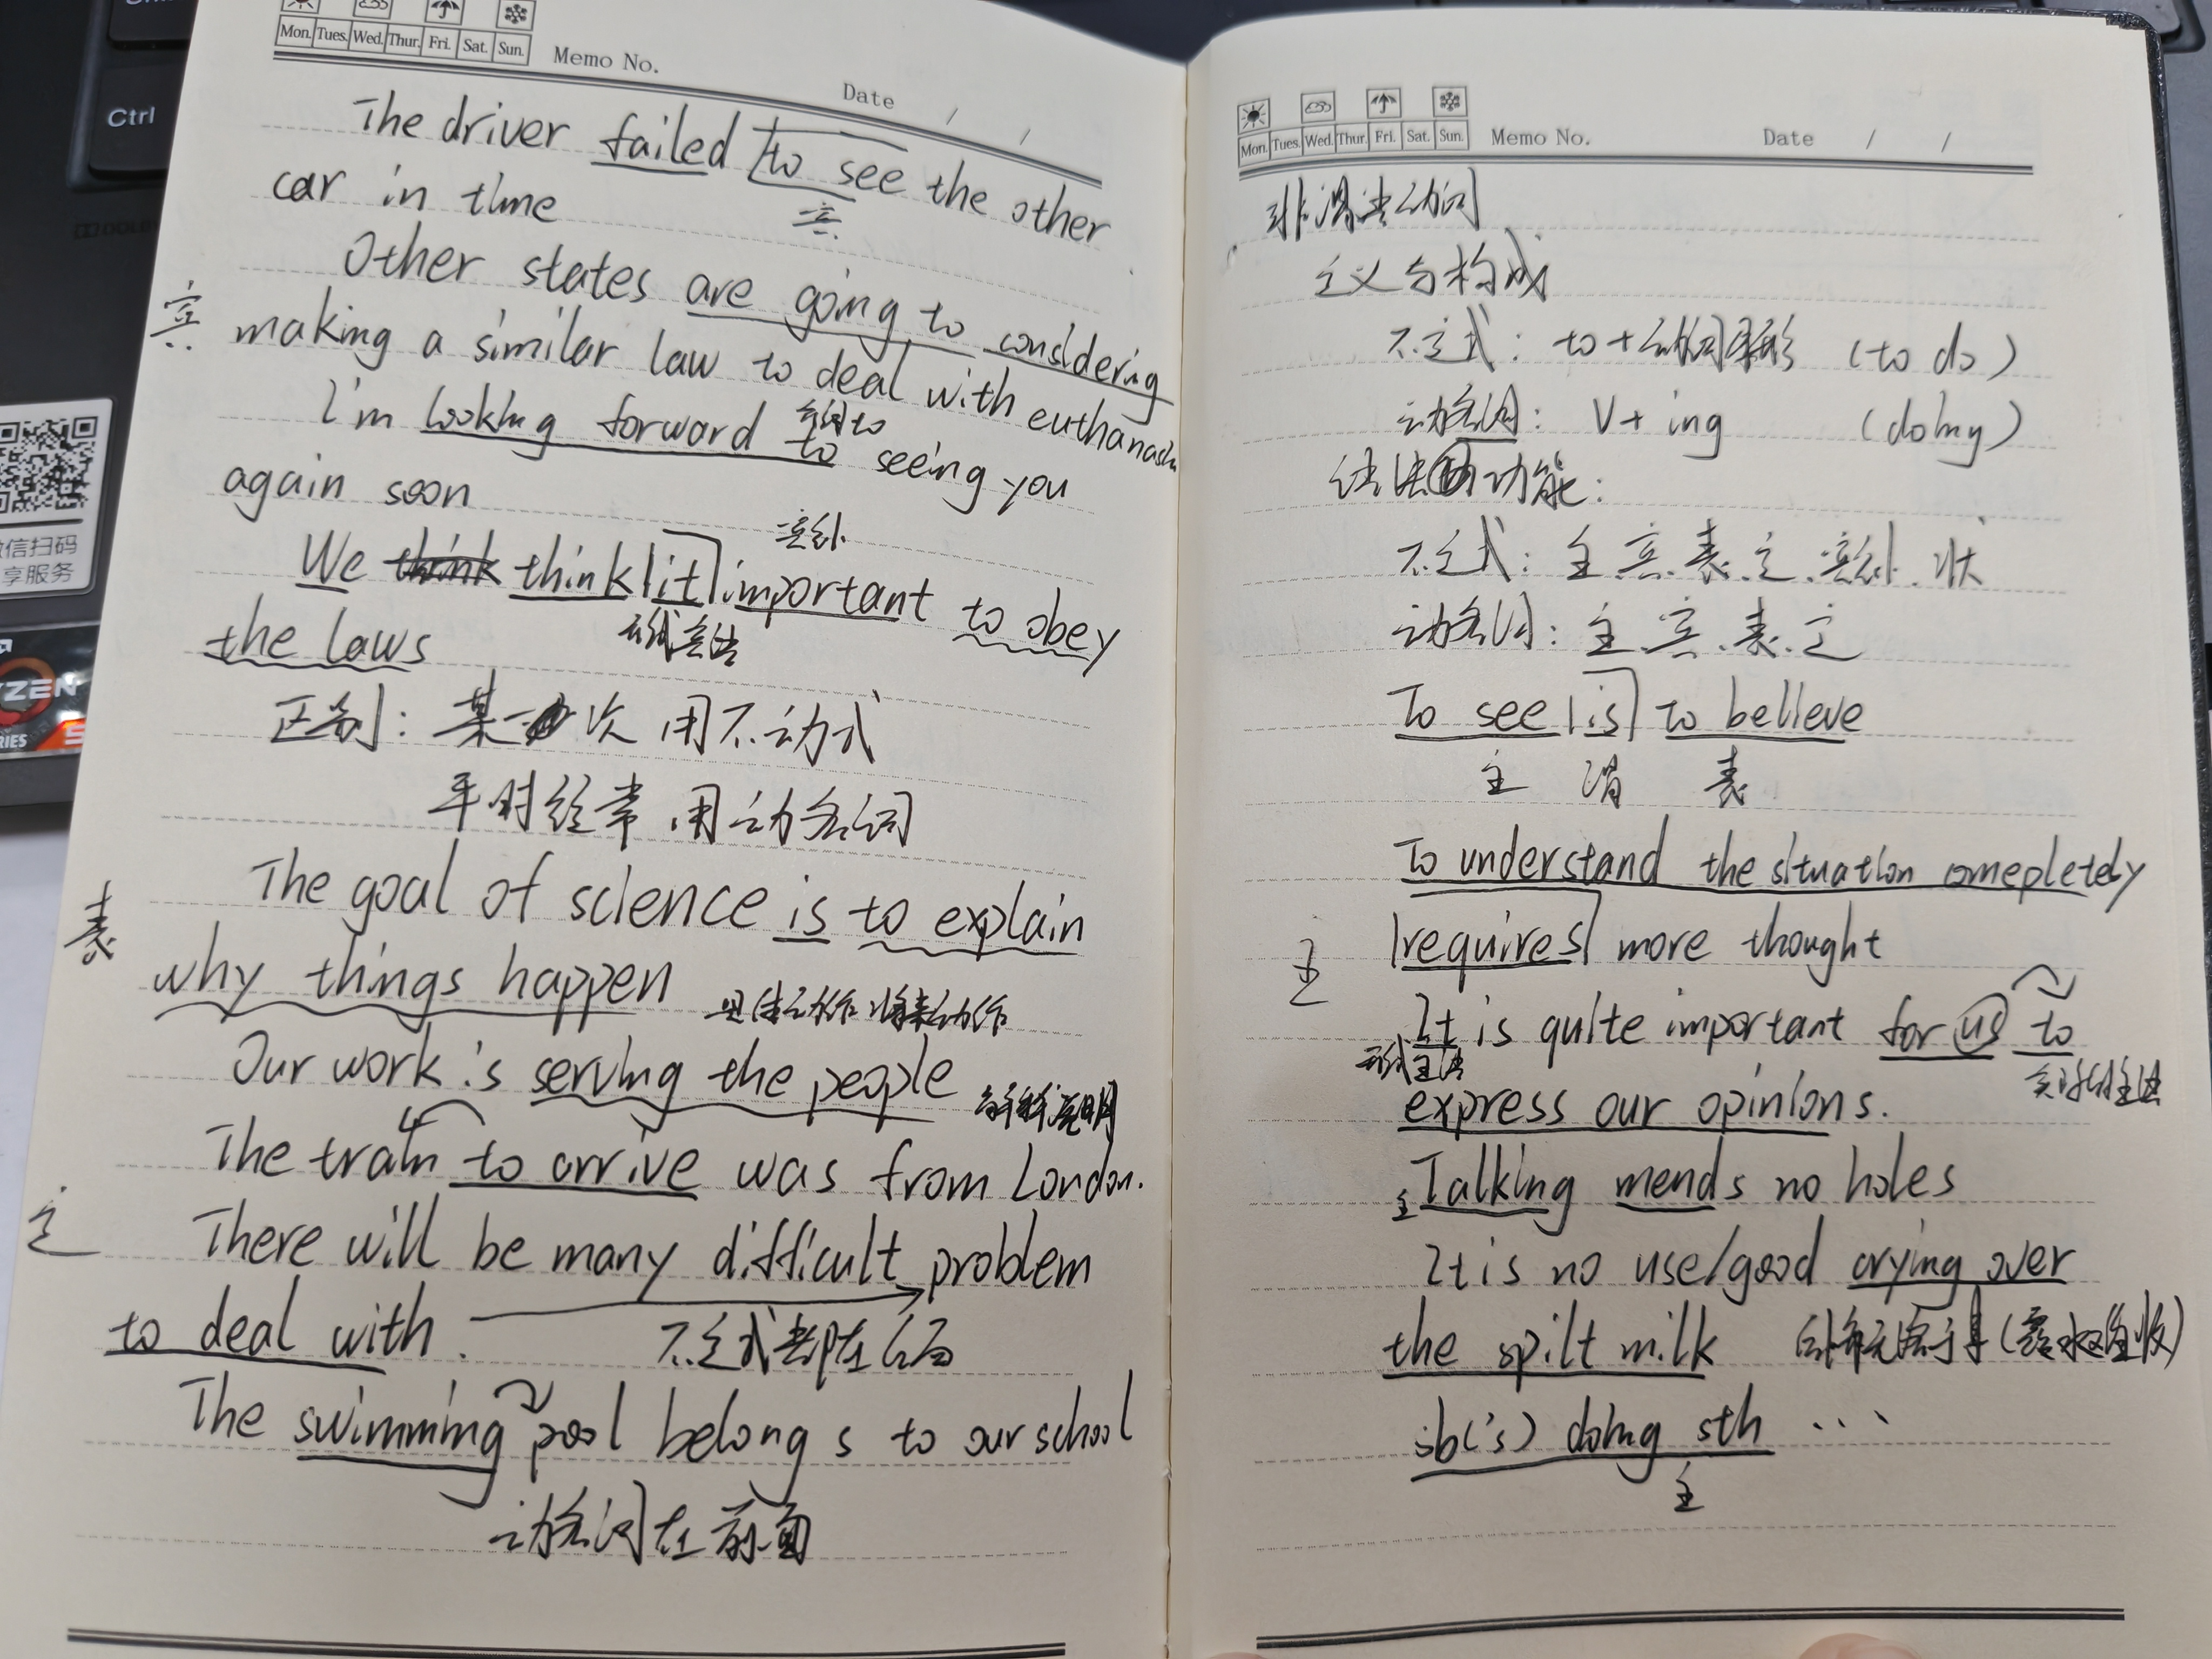 Ctrl
信扫码
享服务
ZEN
RIES 5
Mon. Tues. Wed. Thur. Fri. Sat. Sun. Memo No. Date / /
The driver failed to see the other
宾
car in time
Other states are going to considering
宾 making a similar law to deal with euthanasia
I'm looking forward to seeing you
介词to
again soon
宾补
We think think it important to obey
形式宾语
the laws
区别：某一次 用不动式
平时经常 用动名词
The goal of science is to explain
表
why things happen
具体动作 将来动作
Our work is serving the people
解释说明
The train to arrive was from London.
定
There will be many difficult problem
to deal with.
不定式都在后面
The swimming pool belongs to our school
动名词在前面
Mon. Tues. Wed. Thur. Fri. Sat. Sun. Memo No. Date / /
非谓语动词
定义与构成
不定式：to+动词原形 (to do)
动名词：V+ing (doing)
功能：
不定式：主.宾.表.定.宾补.状
动名词：主.宾.表.定
To see is to believe
主 谓 表
To understand the situation comepletely
主 requires more thought
It is quite important for us to
形式主语
express our opinions.
主 Talking mends no holes
It is no use/good crying over
the spilt milk (覆水难收)
sb('s) doing sth ...
主